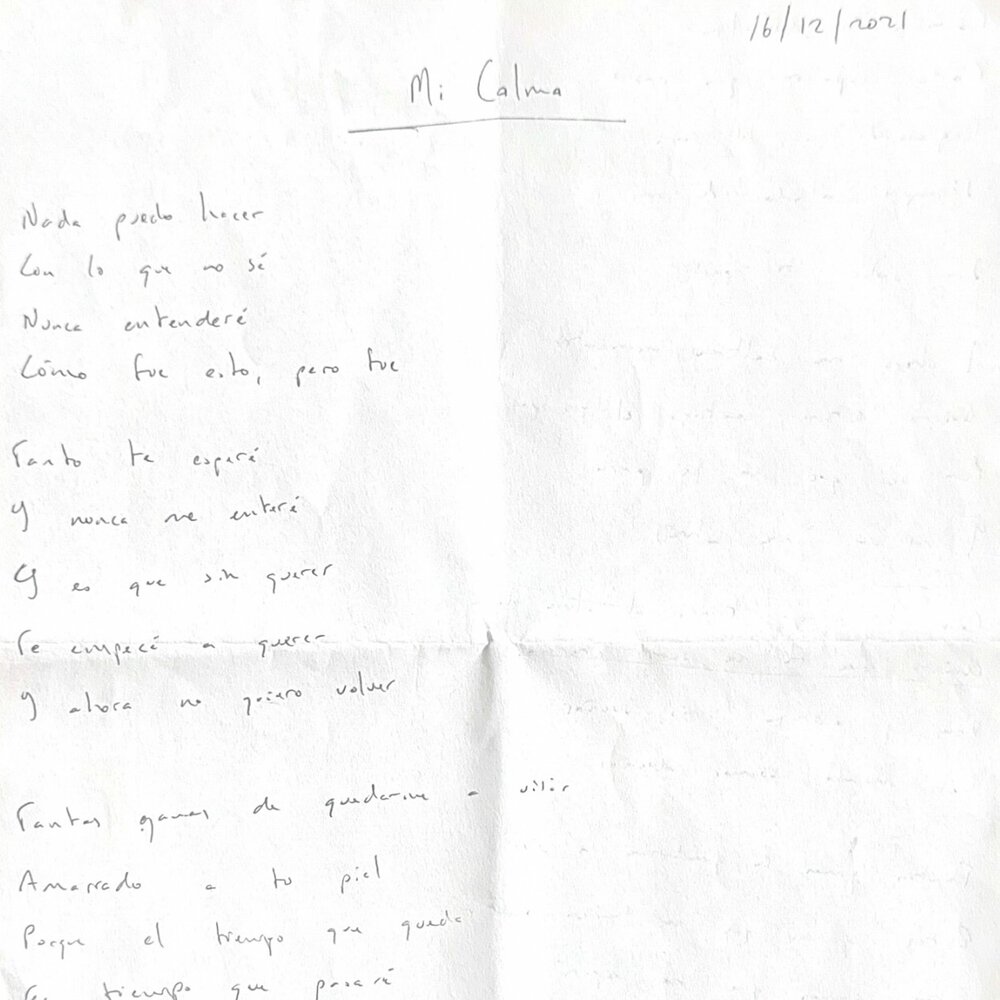 16/12/2021
Mi Calma
Nada puedo hacer
Con lo que no sé
Nunca entenderé
Cómo fue esto, pero fue
Tanto te esperé
Y nunca me enteré
Y es que sin querer
Te empecé a querer
Y ahora no quiero volver
Tantas ganas de quedarme a vivir
Amarrado a tu piel
Porque el tiempo que queda
tiempo que pasaré